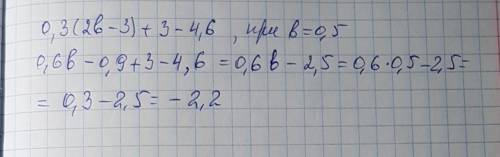 0,3(2в-3)+3-4,6 , при в=0,5
0,6в-0,9+3-4,6 = 0,6в-2,5=0,6·0,5-2,5=
= 0,3-2,5= -2,2